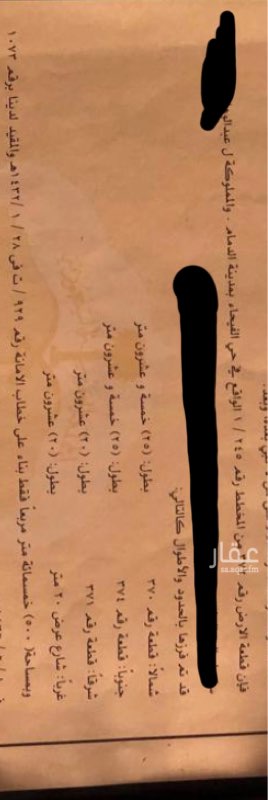 فإن قطعة الارض رقم من المخطط رقم ٢٤٥ / ١ الواقع في حي الفيحاء بمدينة الدمام . والمملوكة ل
قد تم فرزها بالحدود والأطوال كالتالي:
شمالاً: قطعة رقم ٣٧٠ بطول: (٢٥) خمسة و عشرون متر
جنوباً: قطعة رقم ٣٧٤ بطول: (٢٥) خمسة و عشرون متر
شرقاً: قطعة رقم ٣٧١ بطول: (٢٠) عشرون متر
غرباً: شارع عرض ٢٠ متر بطول: (٢٠) عشرون متر
وبمساحة (٥٠٠) خمسمائة متر مربعاً فقط بناء على خطاب الامانة رقم ٩٢٩ / ت في ٢٨ / ١ / ١٤٣٢هـ والمقيد لدينا برقم ١٠٧٣
عقار
sa.aqar.fm